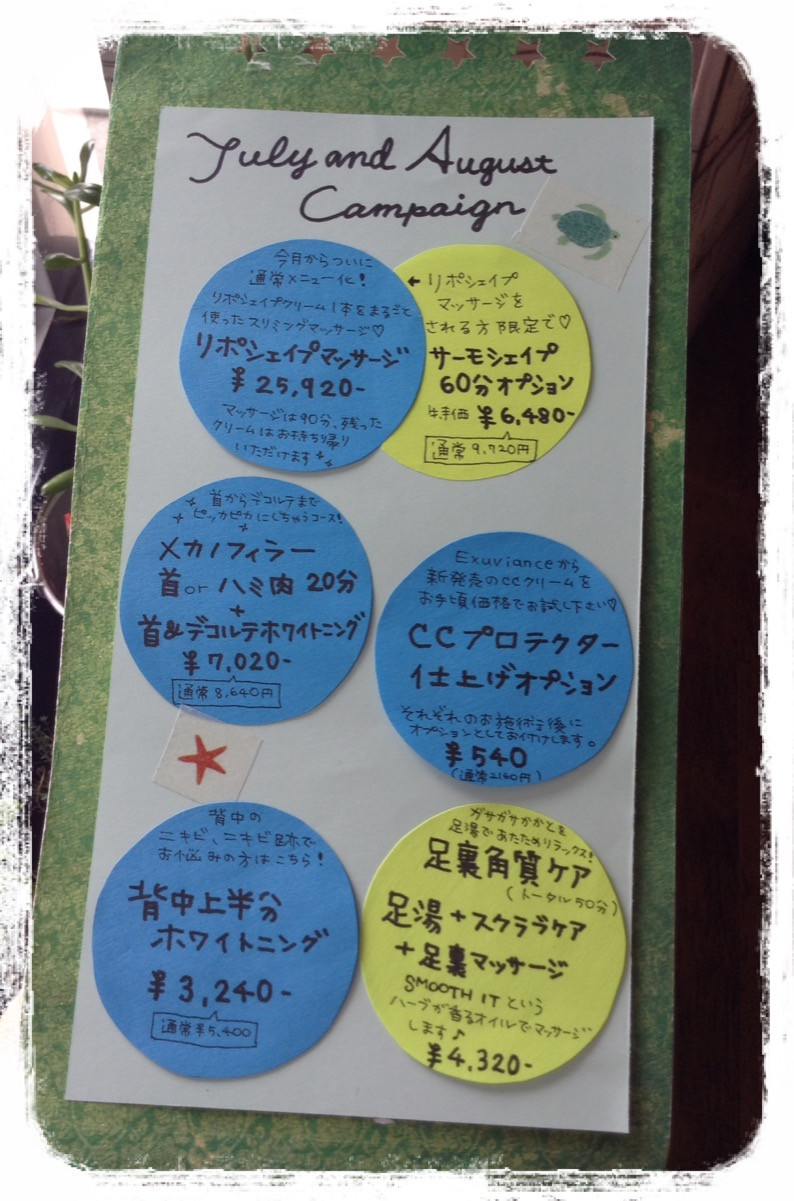 July and August
Campaign
今月からついに
通常メニュー化!
リポシェイプクリーム1本をまるごと
使ったスリミングマッサージ♡
リポシェイプマッサージ
¥25,920-
マッサージは90分、残った
クリームはお持ち帰り
いただけます
←リポシェイプ
マッサージを
される方限定で♡
サーモシェイプ
60分オプション
特価 ¥6,480-
通常9,720円
首からデコルテまで
ピッカピカにしちゃうコース!
メカノフィラー
首orハミ肉20分
+
首&デコルテホワイトニング
¥7,020-
通常8,640円
Exuvianceから
新発売のCCクリームを
お手頃価格でお試し下さい♡
CCプロテクター
仕上げオプション
それぞれのお施術後に
オプションとしてお付けします。
¥540
(通常2160円)
背中の
ニキビ、ニキビ跡で
お悩みの方はこちら!
背中上半分
ホワイトニング
¥3,240-
通常¥5,400
ガサガサかかとを
足湯であたためリラックス!
足裏角質ケア
(トータル50分)
足湯+スクラブケア
+足裏マッサージ
SMOOTH ITという
ハーブが香るオイルでマッサージ
します♪
¥4,320-